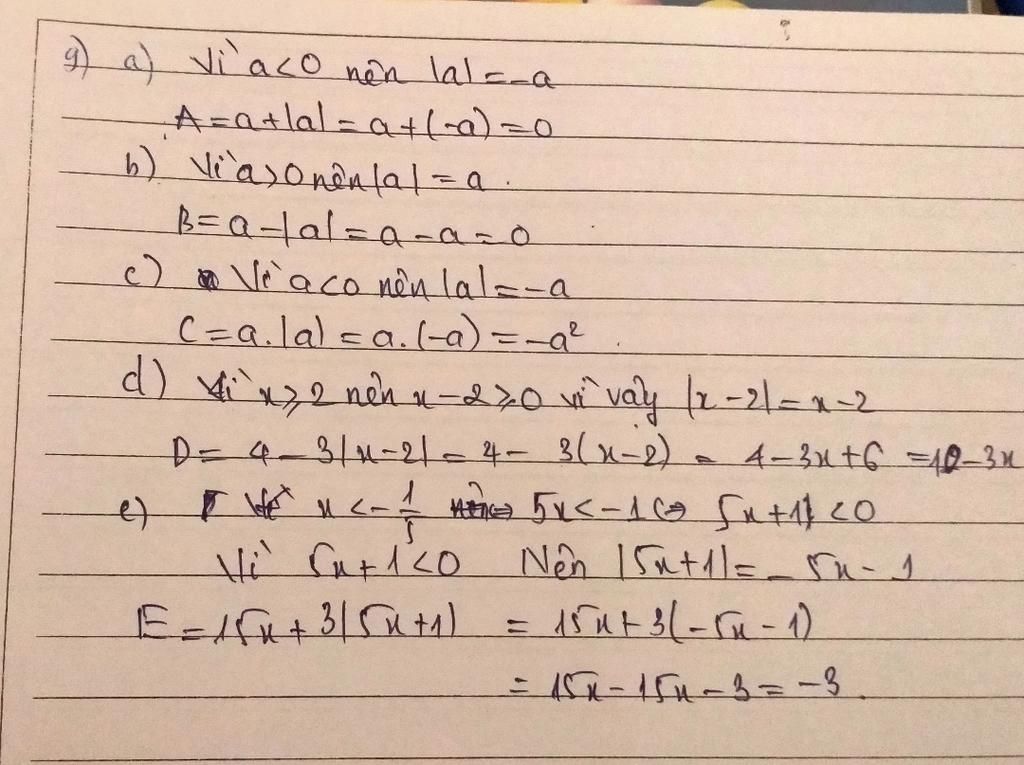 9) a) Vì a<0 nên |a|=-a
A=a+|a|=a+(-a)=0
b) Vì a>0 nên |a|=a.
B=a-|a|=a-a=0
c) Vì a<0 nên |a|=-a
C=a.|a|=a.(-a)=-a².
d) Vì x≥2 nên x-2≥0 vì vậy |x-2|=x-2
D=4-3|x-2|=4-3(x-2)=4-3x+6=10-3x
e) Vì x<-1/5 <=> 5x<-1 <=> 5x+1<0
Vì 5x+1<0 Nên |5x+1|=-5x-1
E=15x+3|5x+1| =15x+3(-5x-1)
=15x-15x-3=-3.